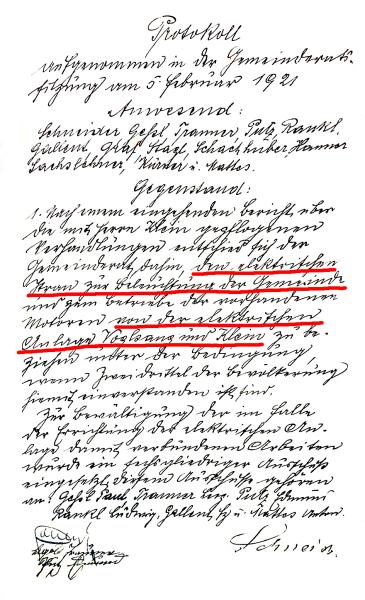 Protokoll
aufgenommen in der Gemeinderats-
sitzung am 5 Februar 1921
Anwesend:
Schneider Gessl, Tranner, Putz, Rankl,
Galient, Graf, Stazl, Schachhuber, Hanner
Sachslehner, u. Mattes.
Gegenstand:
1. Nach einem eingehenden Bericht über
die mit Herrn Klein gepflogenen
Verhandlungen entschied sich der
Gemeinderat dahin, den elektrischen
Strom zur Beleuchtung der Gemeinde
und zum Betriebe der vorhandenen
Motoren von der elektrischen
Anlage Voglsang und Klein zu be-
ziehen unter der Bedingung,
wenn Zweidrittel der Bevölkerung
hiemit einverstanden ist sind.
Zur Bewältigung der im Falle
der Errichtung der elektrischen An-
lage damit verbundenen Arbeiten
wurde ein sechsgliedriger Ausschuß
eingesetzt, diesem Ausschuße gehören
an: Gessl Paul, Tranner Putz Edmund
Rankl Ludwig, u. Mattes Anton.
Schneider